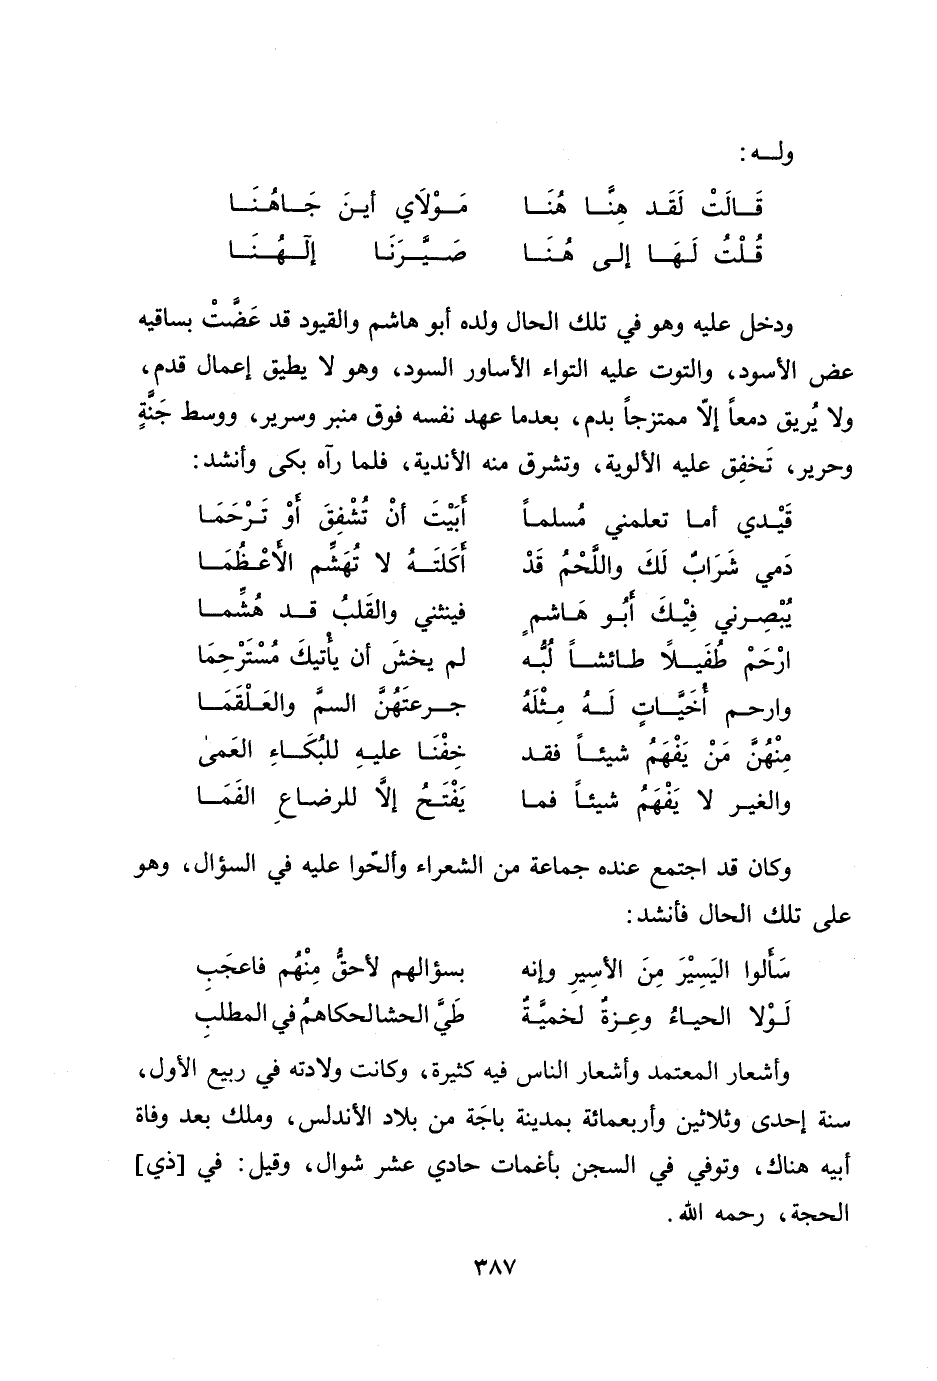 ولـه :
قَـالَتْ لَقَـد هِنَّـا هُنَـا مَـوْلَاي أيـنَ جَـاهُنَـا
قُـلْتُ لَـهَـا إلى هُنَـا صَـيَّـرَنَـا إلٓـهُـنَـا
ودخل عليه وهو في تلك الحال ولده أبو هاشم والقيود قد عَضَّتْ بساقيه
عض الأسود، والتوت عليه التواء الأساور السود، وهو لا يطيق إعمال قدم،
ولا يُريق دمعاً إلاّ ممتزجاً بدم، بعدما عهد نفسه فوق منبر وسرير، ووسط جَنَّةٍ
وحرير، تَخفِق عليه الألوية، وتشرق منه الأندية، فلما رآه بكى وأنشد :
قَيْـدي أمـا تعلمني مُسلمـاً أَبَيْتَ أنْ تُشْفِقَ أَوْ تَـرْحَمَـا
دَمي شَرَابٌ لَكَ واللَّحْمُ قَدْ أَكَلتَـهُ لا تُهَشِّم الأَعْـظُمَـا
يُبْصِـرني فِيْـكَ أَبُـو هَـاشمٍ فينثني والقَلبُ قـد هُشِّمـا
ارْحَمْ طُفَيـلاً طـائشـاً لُبُّـه لم يخشَ أن يأتيكَ مُسْتَرْحِمَا
وارحـم أُخَيَّـاتٍ لَـهُ مِـثْلَهُ جـرعتَهُنَّ السمَّ والعَـلْقَمَـا
مِنْهُنَّ مَنْ يَفْهَمُ شيئـاً فقـد خِفْنَـا عليـهِ للبُكَـاءِ العَمىٰ
والغيـر لا يَفْهَمُ شيئـاً فمـا يَفْتَـحُ إلاَّ للرضـاعِ الفَمَـا
وكان قد اجتمع عنده جماعة من الشعراء وألحّوا عليه في السؤال، وهو
على تلك الحال فأنشد :
سَأَلوا اليَسِيْرَ مِنَ الأسيرِ وإنه بسؤالهم لأحقُّ مِنْهُم فاعجَبِ
لَـوْلا الحيـاءُ وعِـزةٌ لخميَّـةٌ طَيَّ الحشا لحكاهمُ في المطلبِ
وأشعار المعتمد وأشعار الناس فيه كثيرة، وكانت ولادته في ربيع الأول،
سنة إحدى وثلاثين وأربعمائة بمدينة باجَة من بلاد الأندلس، وملك بعد وفاة
أبيه هناك، وتوفي في السجن بأغمات حادي عشر شوال، وقيل : في [ذي]
الحجة، رحمه الله .
٣٨٧